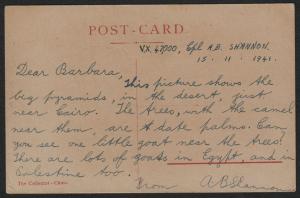 POST-CARD.
VX. 47000, Cpl A.B. SHANNON.
15. 11. 1941.
Dear Barbara,
This picture shows the
big pyramids, in the desert, just
near Cairo. The trees, with the camel
near them, are date palms. Can
you see one little goat near the trees?
There are lots of goats in Egypt, and in
Palestine too.
From A B Shannon
The Collectst - Cairo